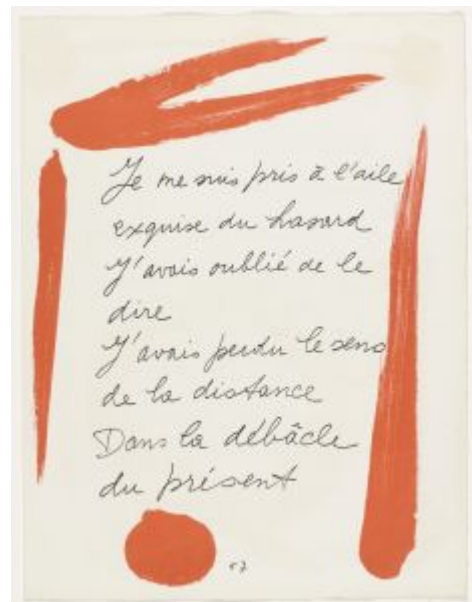 Je me suis pris à l'aile
exquise du hasard
J'avais oublié de le
dire
J'avais perdu le sens
de la distance
Dans la débâcle
du présent